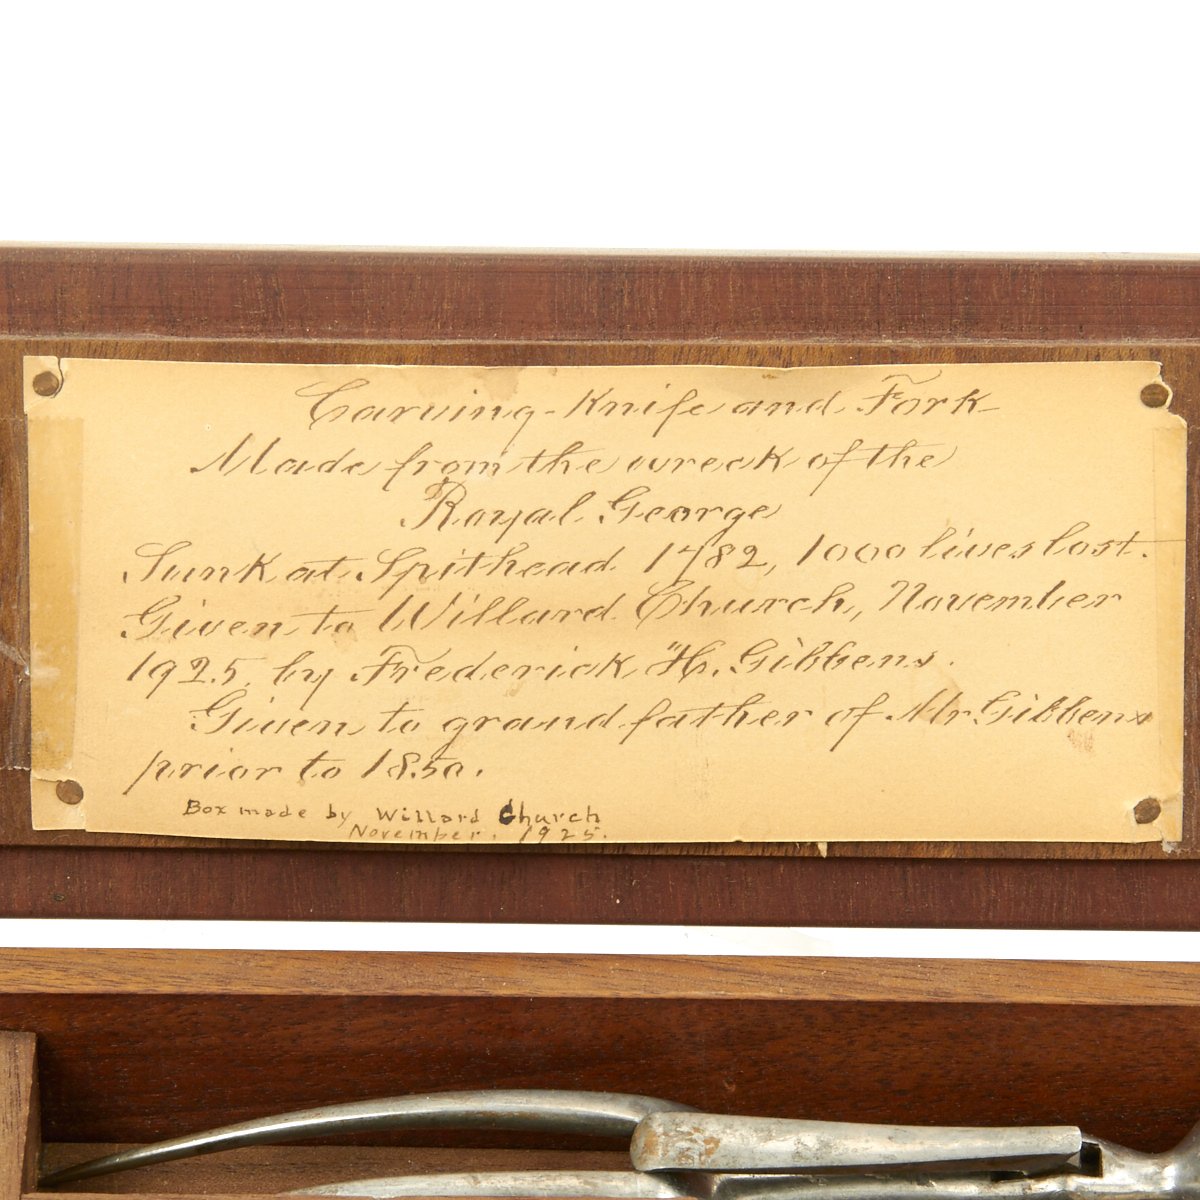 Carving-Knife and Fork
Made from the wreck of the
Royal George
Sunk at Spithead 1782, 1000 lives lost.
Given to Willard Church, November
1925, by Frederick H. Gibbens.
Given to grand father of Mr Gibbens
prior to 1850.
Box made by Willard Church
November. 1925.